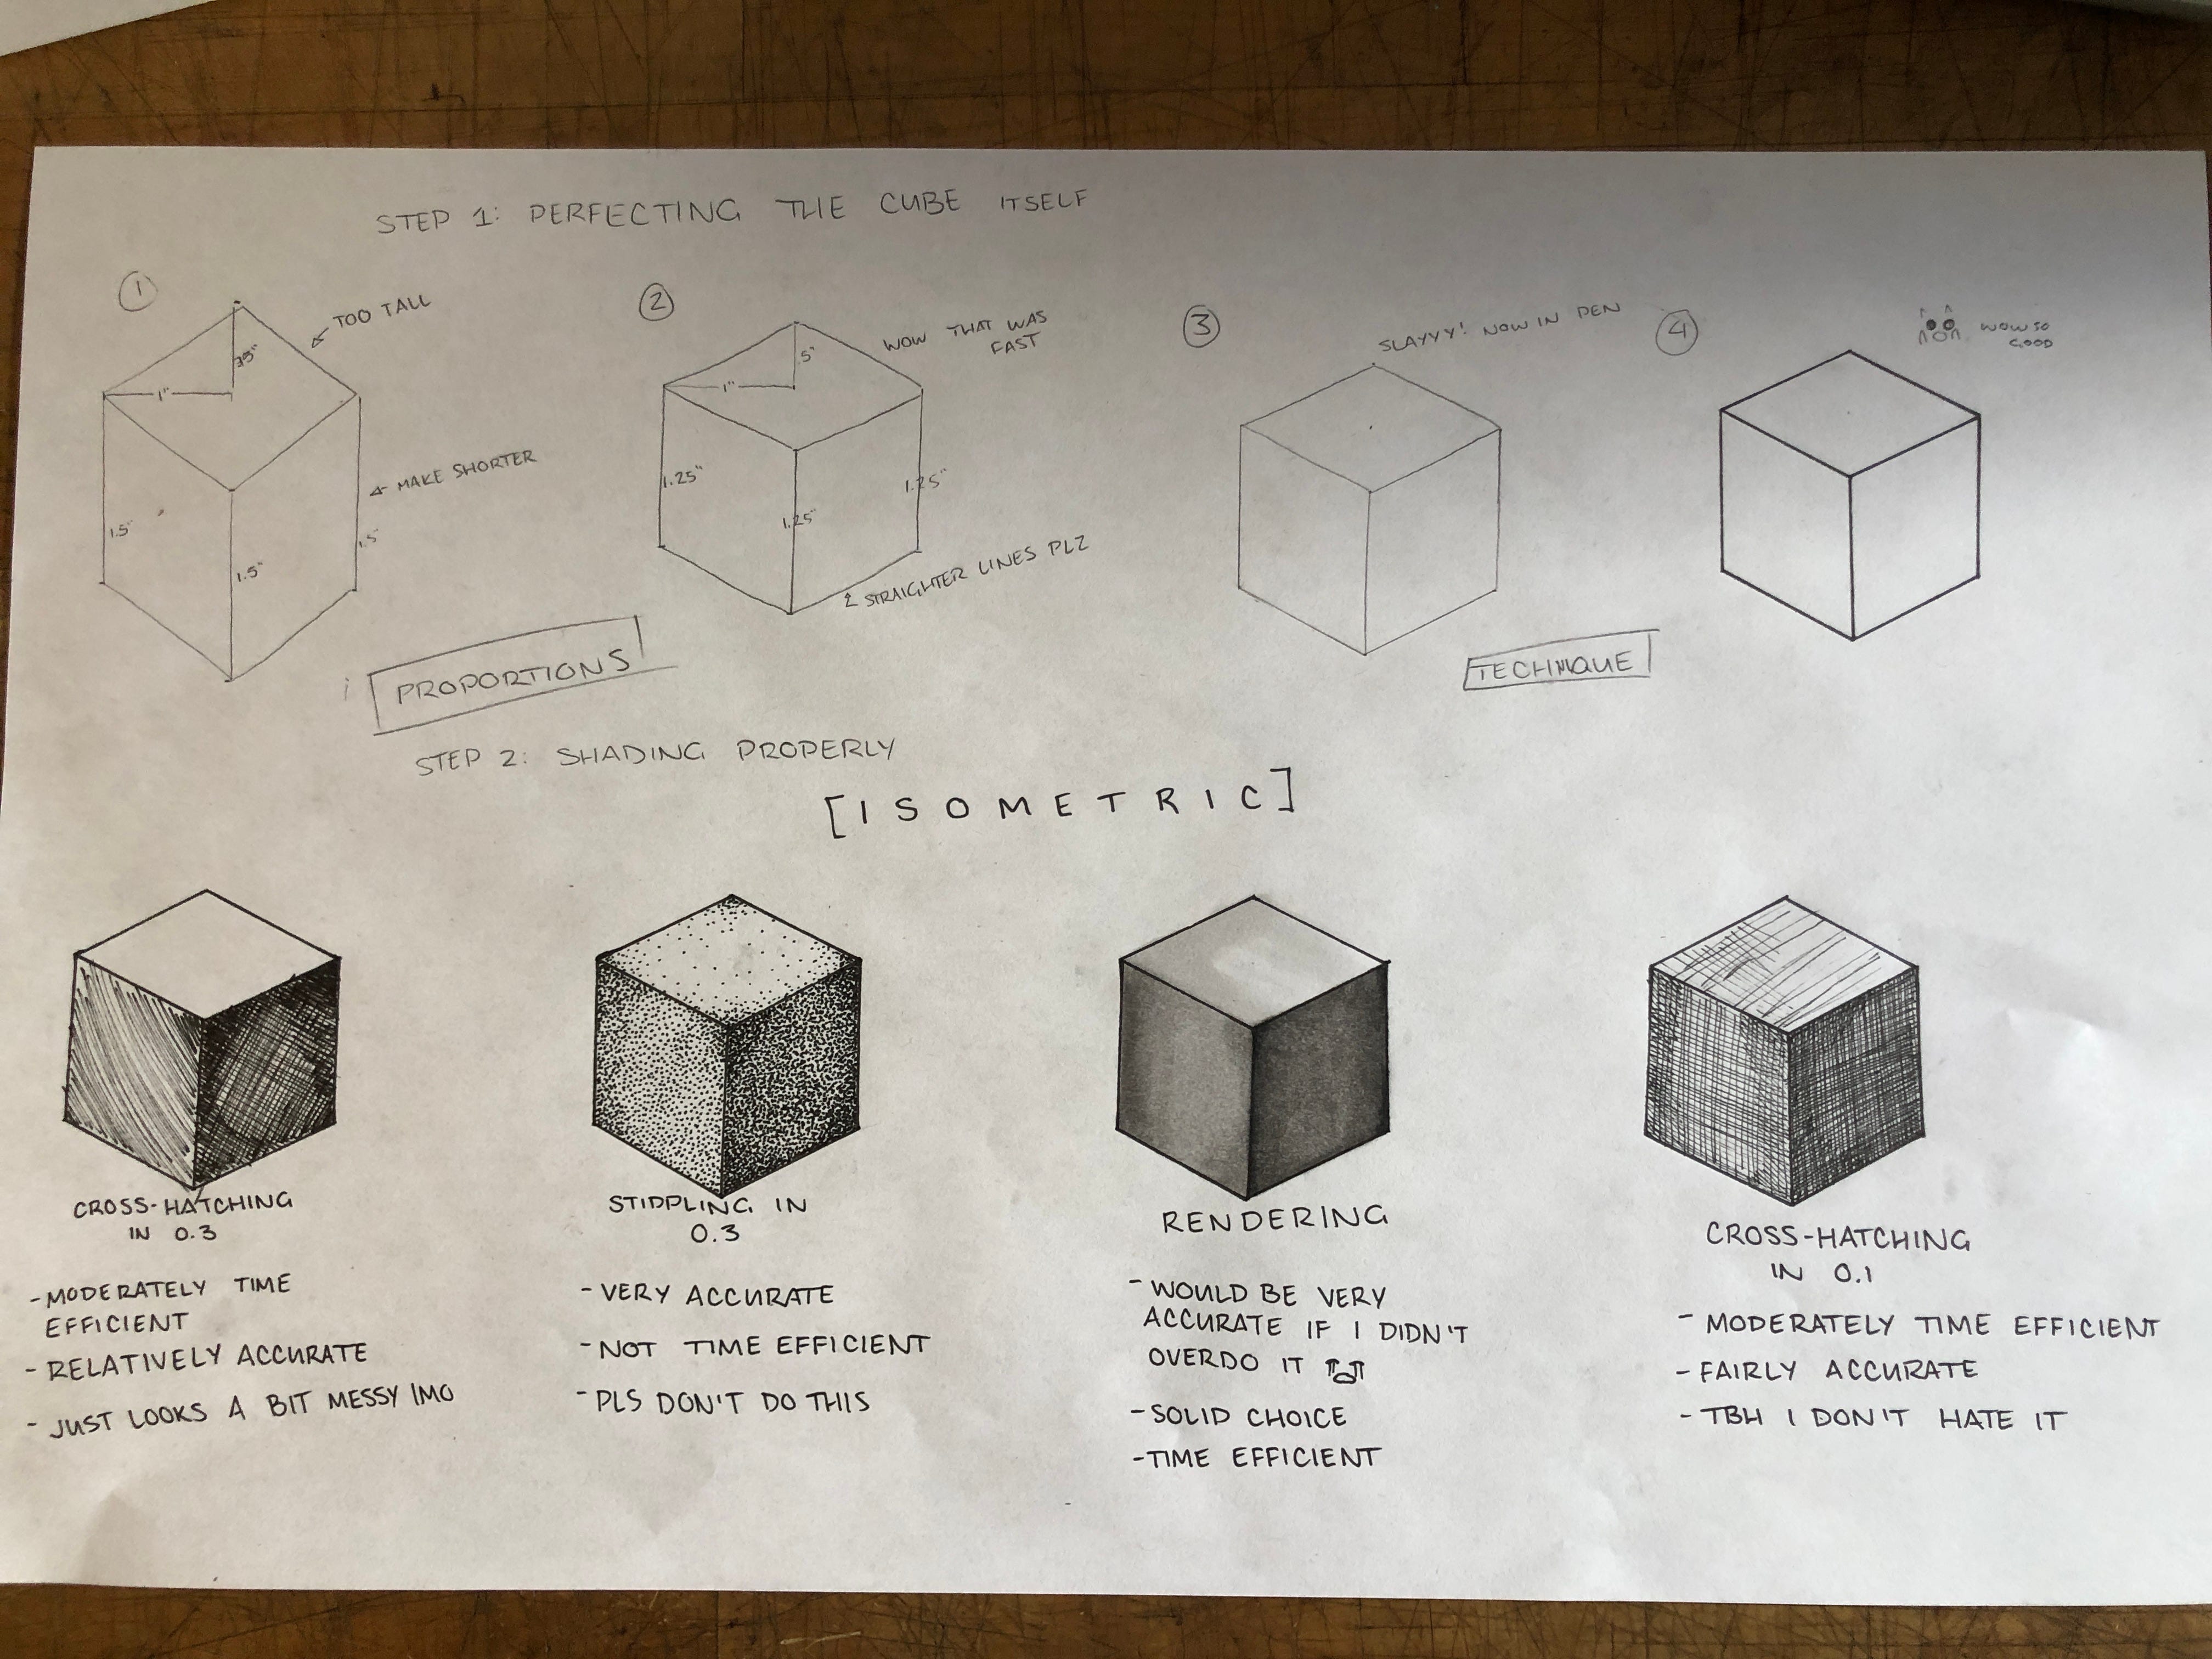 STEP 1: PERFECTING THE CUBE ITSELF
1
TOO TALL
.75"
1"
MAKE SHORTER
1.5"
1.5"
1.5"
2
WOW THAT WAS
FAST
.5"
1"
1.25"
1.25"
1.25"
STRAIGHTER LINES PLZ
3
SLAYYY! NOW IN PEN
4
WOW SO
GOOD
PROPORTIONS
TECHNIQUE
STEP 2: SHADING PROPERLY
[ISOMETRIC]
CROSS-HATCHING
IN 0.3
-MODERATELY TIME
EFFICIENT
-RELATIVELY ACCURATE
- JUST LOOKS A BIT MESSY IMO
STIPPLING IN
0.3
-VERY ACCURATE
-NOT TIME EFFICIENT
-PLS DON'T DO THIS
RENDERING
-WOULD BE VERY
ACCURATE IF I DIDN'T
OVERDO IT
-SOLID CHOICE
-TIME EFFICIENT
CROSS-HATCHING
IN 0.1
-MODERATELY TIME EFFICIENT
-FAIRLY ACCURATE
-TBH I DON'T HATE IT